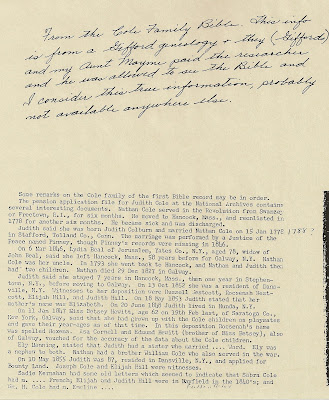 From the Cole Family Bible. This info
is from a Gifford geneology & they (Giffords)
and my Aunt Mayme paid the researcher
and he was allowed to see the Bible and
I consider this true information, probably
not available anywhere else.
Some remarks on the Cole family of the first Bible record may be in order.
The pension application file for Judith Cole at the National Archives contains
several interesting documents. Nathan Cole served in the Revolution from Swanzey
or Freetown, R.I., for six months. He moved to Hancock, Mass., and reenlisted in
1778 for another six months. He became sick and was discharged.
Judith said she was born Judith Colburn and married Nathan Cole on 15 Jan
in Stafford, Tolland Co., Conn. The marriage was performed by a Justice of the
Peace named Pinney, though Pinney's records were missing in 1846.
On 6 Mar 1846, Lydia Beal of Jerusalem, Yates Co., N.Y., aged 78, widow of
John Beal, said she left Hancock, Mass., 58 years before for Galway, N.Y. Nathan
Cole was her uncle. In 1793 she went back to Hancock, and Nathan and Judith then
had two children. Nathan died 29 Dec 1827 in Galway.
Judith said she stayed 7 years in Hancock, Mass., then one year in Stephen-
town, N.Y., before moving to Galway. On 13 Oct 1842 she was a resident of Duns-
ville, N.Y. Witnesses to her deposition were Russell Bentcott, Roccena Bent-
cott, Elijah Hill, and Judith Hill. On 18 May 1853 Judith stated that her
Mother's name was Elizabeth. On 20 June 1843 Judith lived in Nunda, N.Y.
On 11 Jan 1847 Miss Betsey Hewitt, age 62 on 19th Feb last, of Saratoga Co.,
New York, Galway, said that she had grown up with the Cole children as playmates
and gave their yearages as of that time. In this deposition Roccenah's name
was spelled Roxena. Asa Cornell and Edmund Hewitt (brother of Miss Betsey), also
of Galway, vouched for the accuracy of the data about the Cole children.
Ely Banning, stated that Judith had a sister who married .... Ward. Ely was
a nephew to both. Nathan had a brother William Cole who also served in the war.
On 18 May 1855 Judith was 87, resided in Dansville, N.Y., and applied for
Bounty Land. Joseph Cole and Elijah Hill were witnesses.
Sadie Hernahan had some old letters which seemed to indicate that Sabri Cole
had m. .... French; Elijah and Judith Hill were in Mayfield in the 1840's; and
Dr. H. Cole had m. Emeline ....